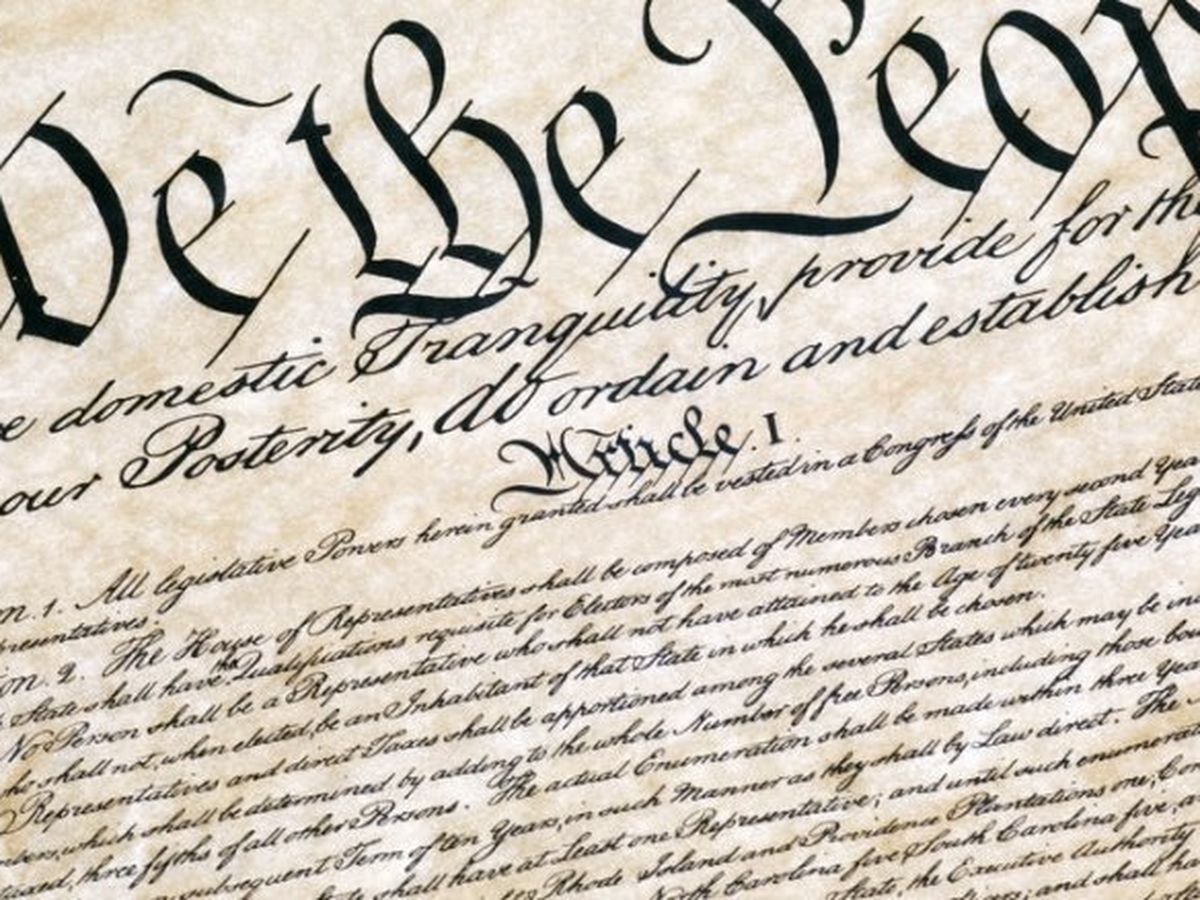 We the Peop
e domestic Tranquility, provide for the
our Posterity, do ordain and establish
Article. I.
n. 1. All legislative Powers herein granted shall be vested in a Congress of the United State
presentatives.
on. 2. The House of Representatives shall be composed of Members chosen every second Year
State shall have the Qualifications requisite for Electors of the most numerous Branch of the State Leg
No Person shall be a Representative who shall not have attained to the Age of twenty five Yea
ho shall not, when elected, be an Inhabitant of that State in which he shall be chosen.
Representatives and direct Taxes shall be apportioned among the several States which may be in
mbers, which shall be determined by adding to the whole Number of free Persons, including those bou
taxed, three fifths of all other Persons. The actual Enumeration shall be made within three Yea
subsequent Term of ten Years, in such Manner as they shall by Law direct. The
State shall have at Least one Representative; and until such enumera
Rhode Island and Providence Plantations one, Con
North Carolina five, South Carolina five, a
State, the Executive Authority
and shall ha